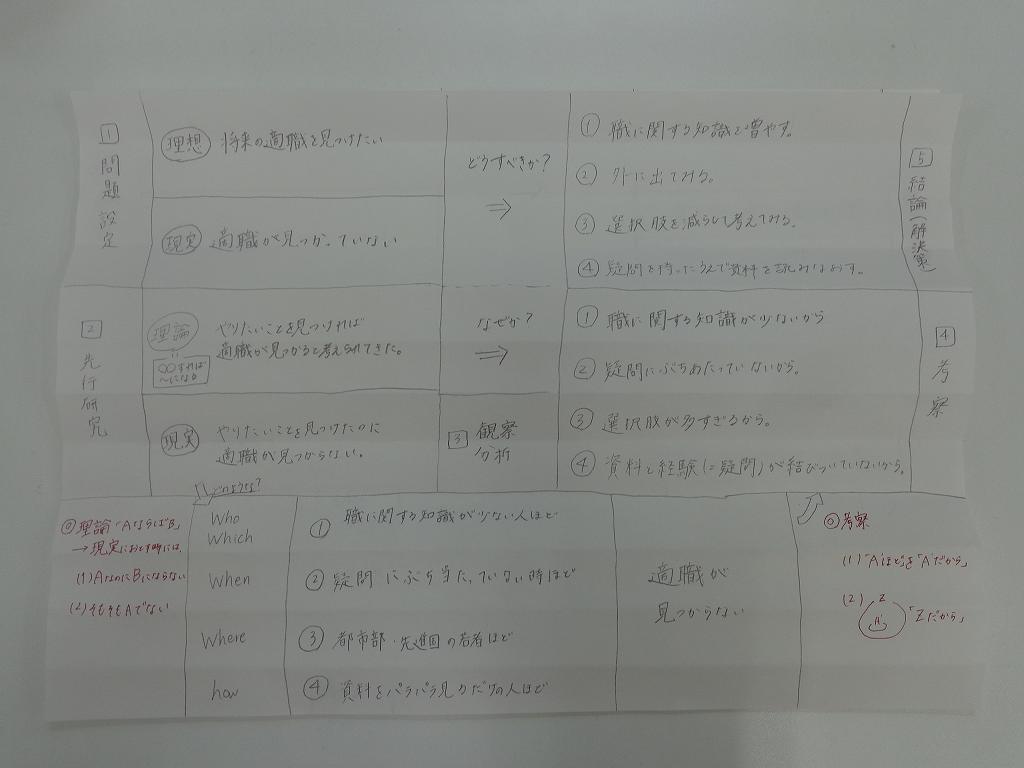 1 問題設定
理想 将来の適職を見つけたい
現実 適職が見つかっていない
どうすべきか?
⇒
① 職に関する知識を増やす。
② 外に出てみる。
③ 選択肢を減らして考えてみる。
④ 疑問を持ったうえで資料を読みなおす。
5 結論(解決策)
2 先行研究
理論 やりたいことを見つければ
適職が見つかると考えられてきた。
〇〇すれば
~になる
現実 やりたいことを見つけたのに
適職が見つからない。
なぜか?
⇒
3 観察
分析
① 職に関する知識が少ないから
② 疑問にぶちあたっていないから。
③ 選択肢が多すぎるから。
④ 資料と経験(に疑問)が結びついていないから。
4 考察
どのような?
◎理論「AならばB」
→現実におとす時には、
(1) AなのにBにならない
(2) そもそもAでない
Who
Which
When
Where
how
① 職に関する知識が少ない人ほど
② 疑問にぶち当たっていない時ほど
③ 都市部・先進国の若者ほど
④ 資料をパラパラ見ただけの人ほど
適職が
見つからない
◎考察
(1)「Aほど」を「Aだから」
(2) Z A 「Zだから」